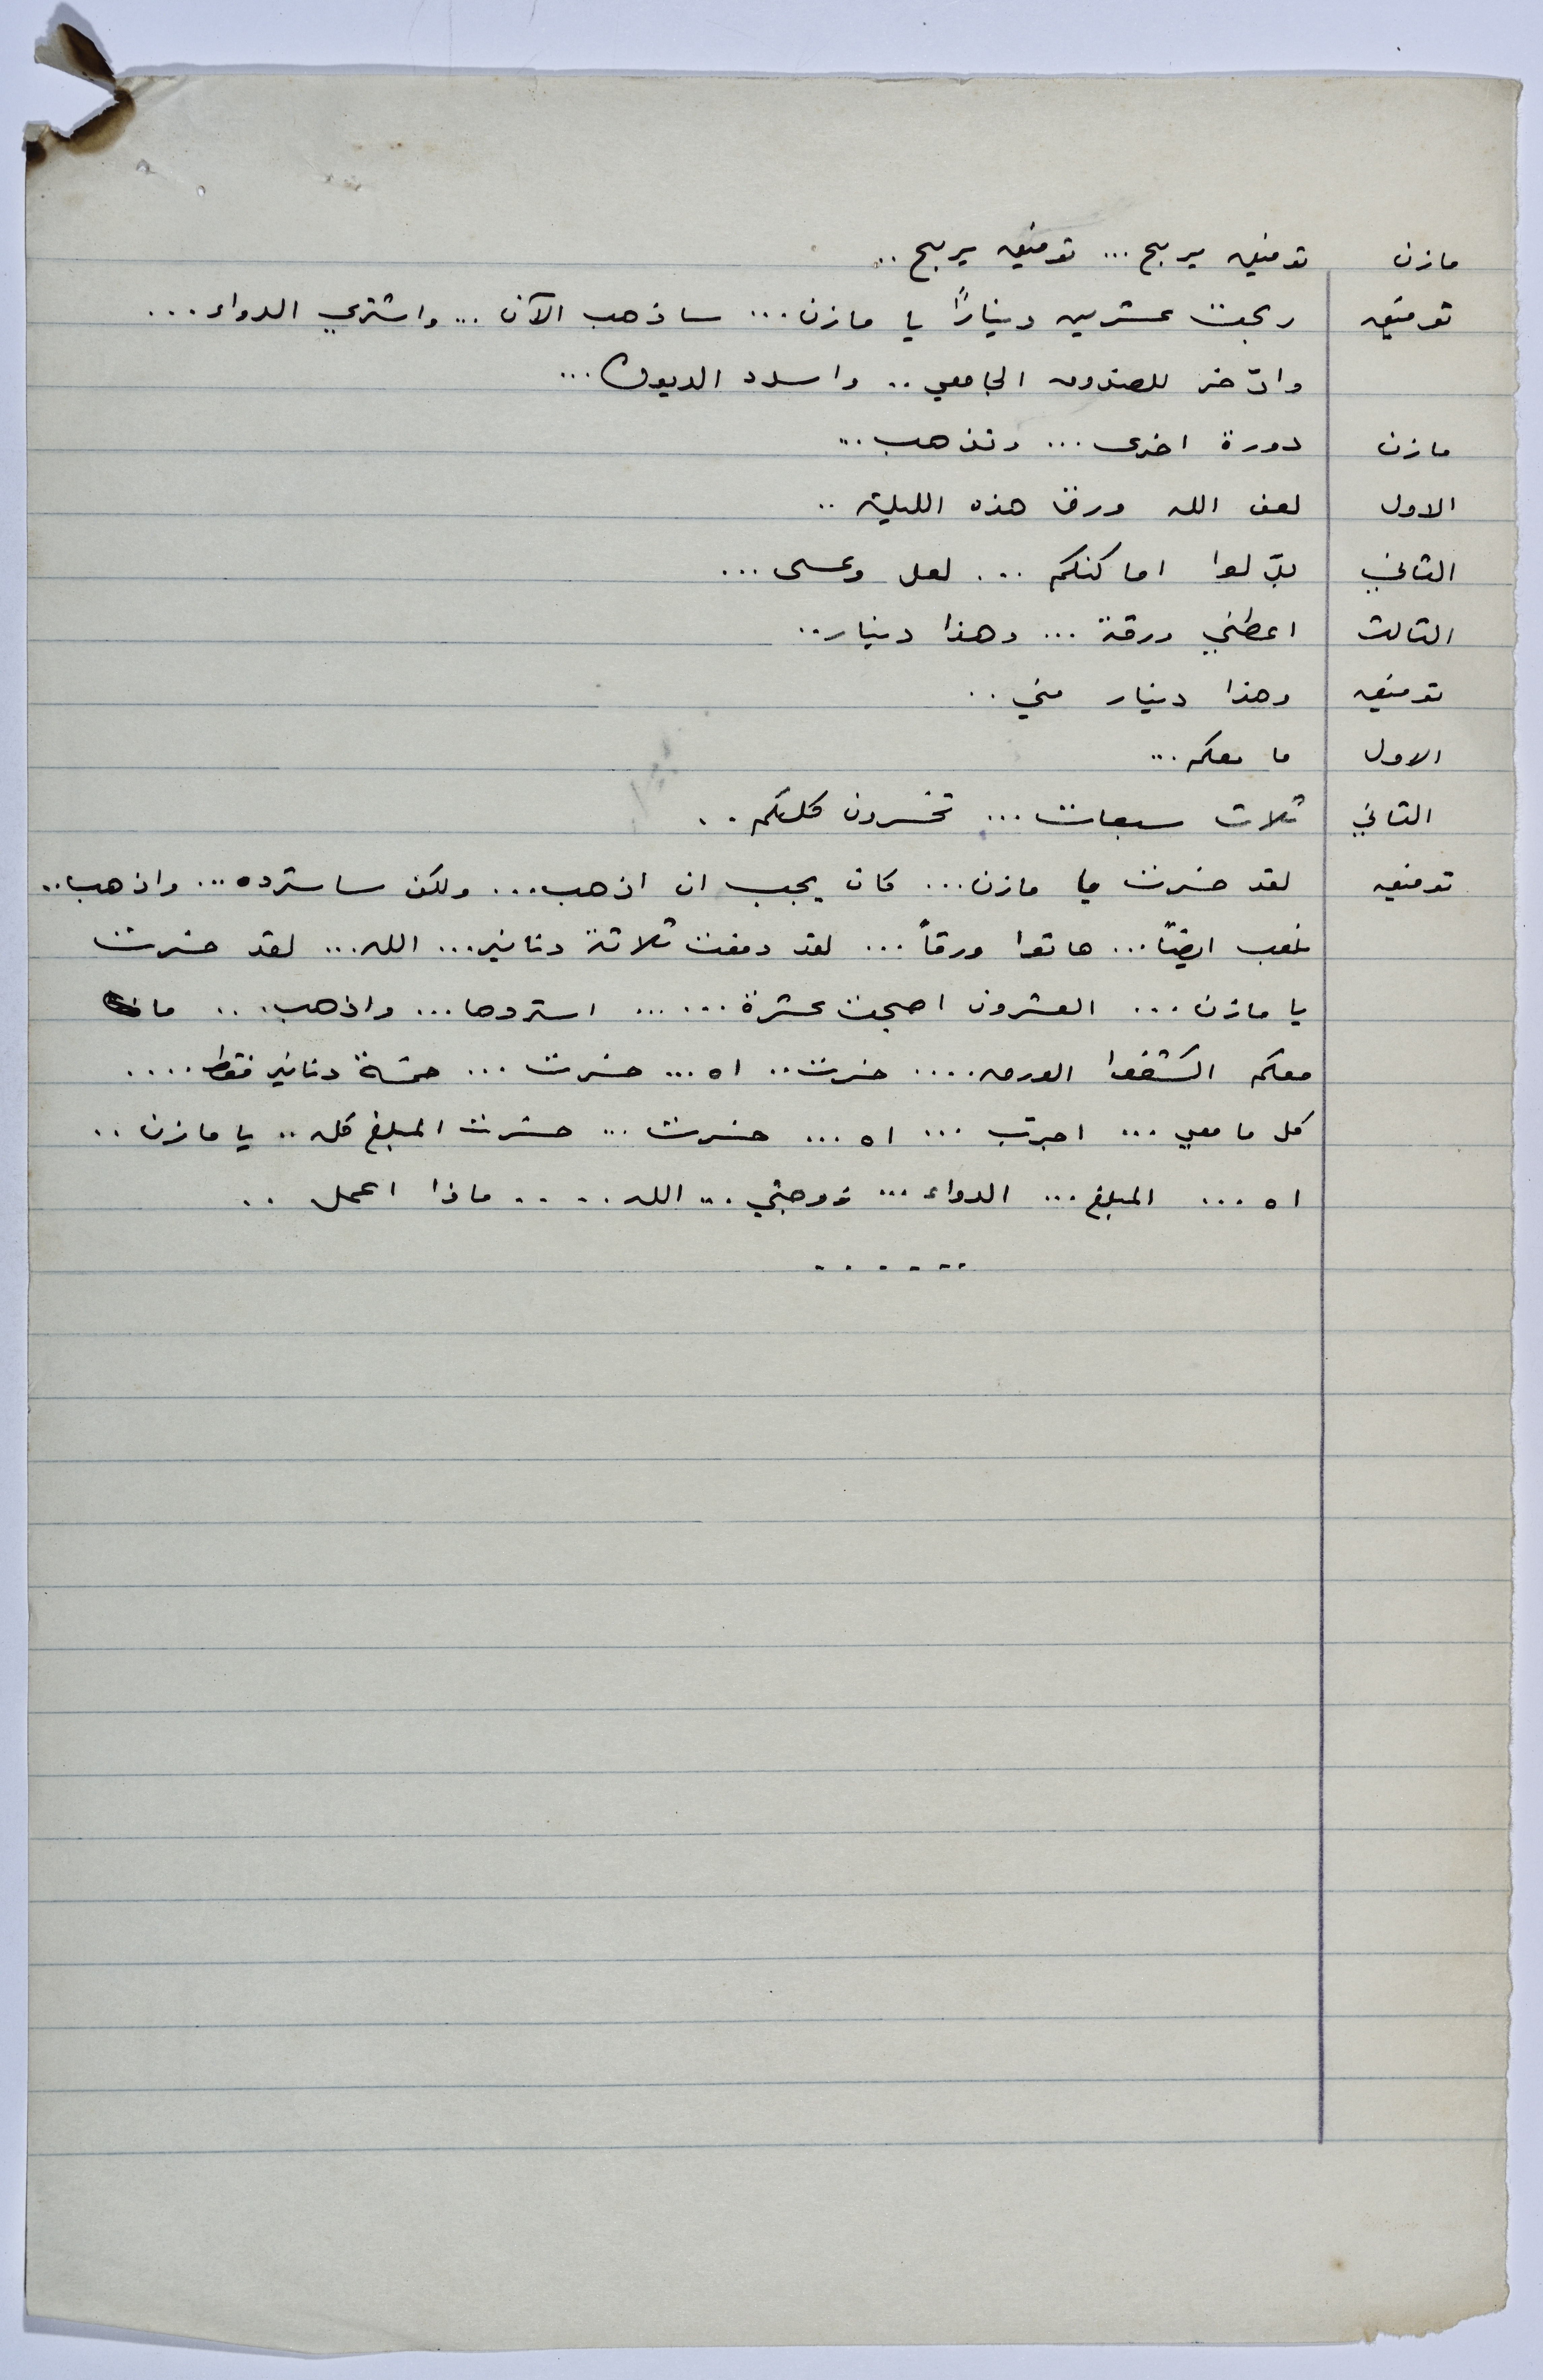 مازن توفيق يربح ... توفيق يربح ..
توفيق ربحت عشرين ديناراً يا مازن ... ساذهب الآن ... واشتري الدواء ...
وادّخر للصندوق الجامعي .. واسدد الديون ...
مازن دورة اخرى ... وتذهب ...
الاول لعن الله ورق هذه الليلة ..
الثاني بدّلوا اماكنكم ... لعل وعسى ...
الثالث اعطني ورقة ... وهذا دينار ..
توفيق وهذا دينار مني ..
الاول ما معكم ...
الثاني ثلاث سبعات ... تخسرون كلكم ..
توفيق لقد خسرت يا مازن ... كان يجب ان اذهب ... ولكن ساسترده ... واذهب ..
نلعب ايضاً ... هاتوا ورقاً ... لقد دفعت ثلاثة دنانير ... الله ... لقد خسرت
يا مازن ... العشرون اصبحت عشرة ...... استردها ... واذهب ... ما
معكم اكشفوا الورق .... خسرت .. اه ... خسرت ... خمسة دنانير فقط ....
كل ما معي ... اجرّب ... اه ... خسرت ... خسرت المبلغ كله .. يا مازن ..
اه ... المبلغ ... الدواء ... زوجتي ... الله ..... ماذا اعمل ..
......